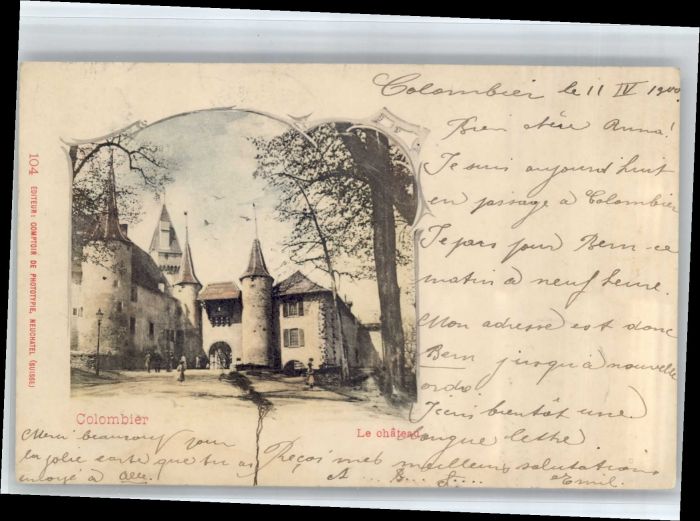 Colombier le 11 IV 1900
Bien chère Anna!
Je suis aujourd huit
en passage à Colombier
Je pars pour Bern ce
matin à neuf heure.
Mon adresse est donc
Bern jusqu'à nouvelle
ordre
J'cris bientôt une
longue lettre
Reçois mes meilleurs salutations
A... B... S....
Emil.
Merci beaucoup pour
la jolie carte que tu as
envoyé à
Colombier
Le château
104 EDITEUR: COMPTOIR DE PHOTOTYPIE, NEUCHATEL (SUISSE)